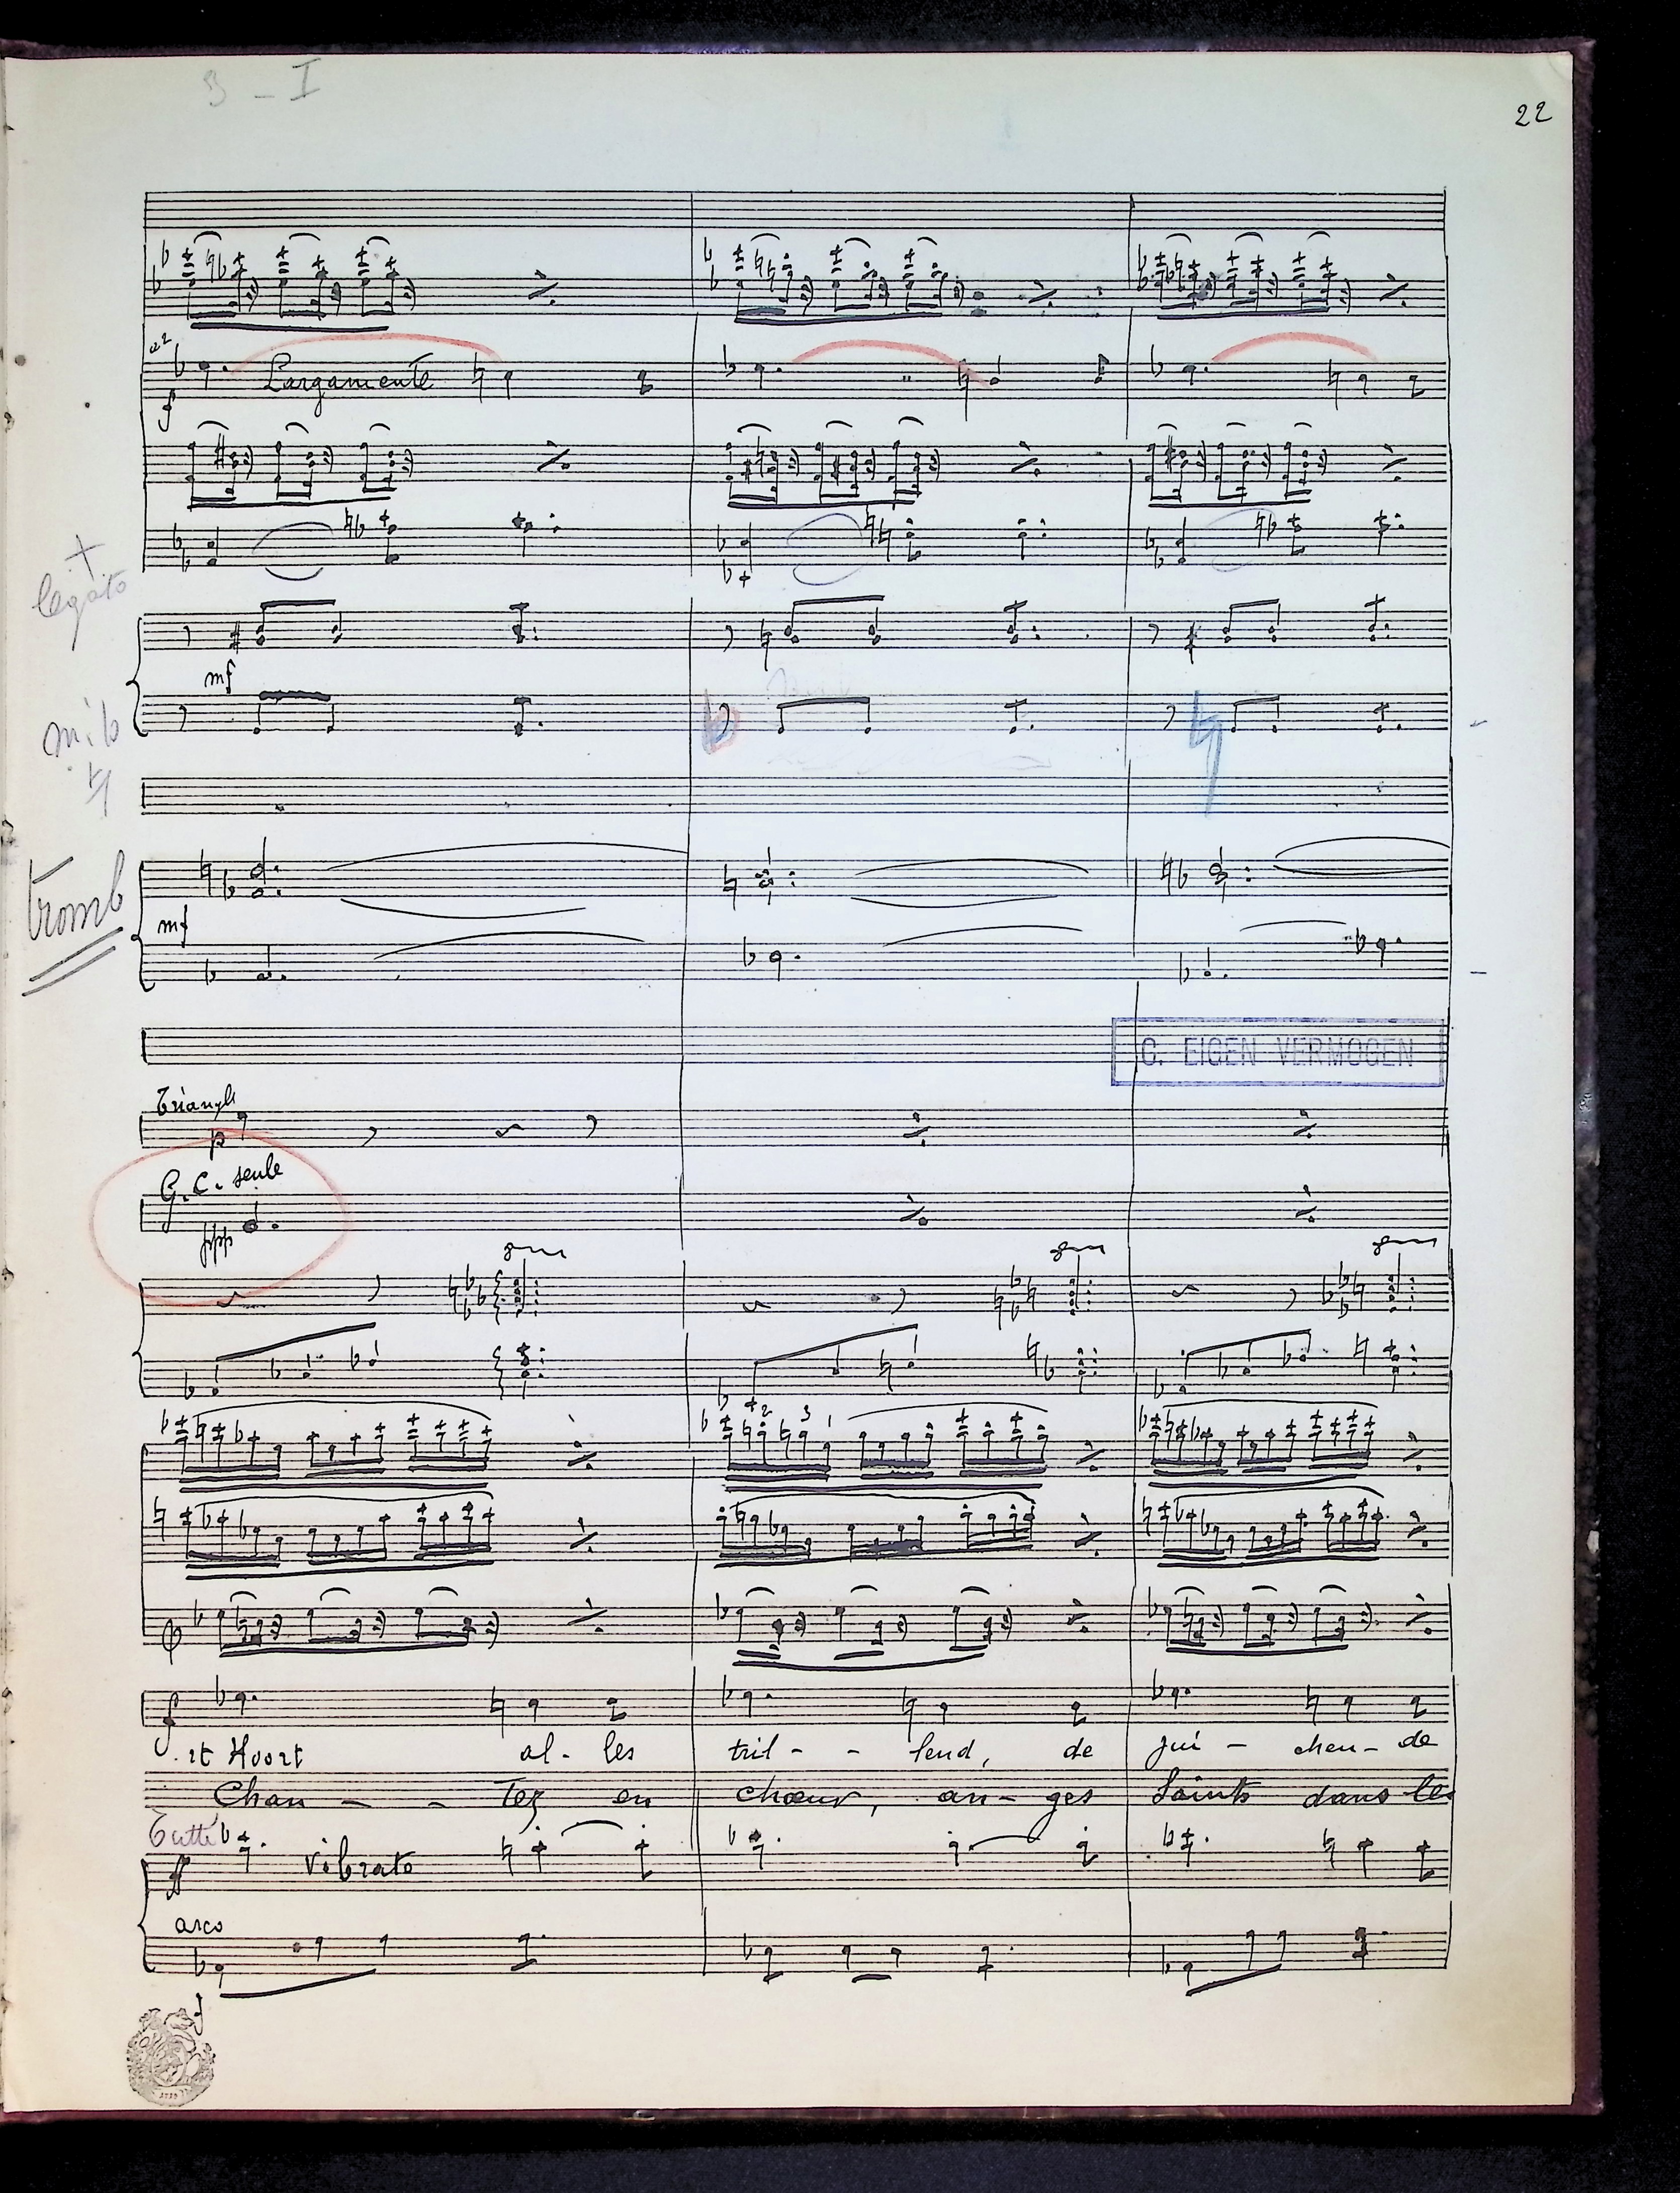 3 - I
22
a2
f
Largamente
+
legato
mf
mib
Tromb
mf
C. EIGEN VERMOGEN
Triangle
p
G. C. seule
ppp
2 3 1
f
't Hoort al - les tril - - lend, de jui - chen - de
Chan - - Tez en chœur, an - ges Saints dans les
Tutti
ff
Vibrato
arco
f